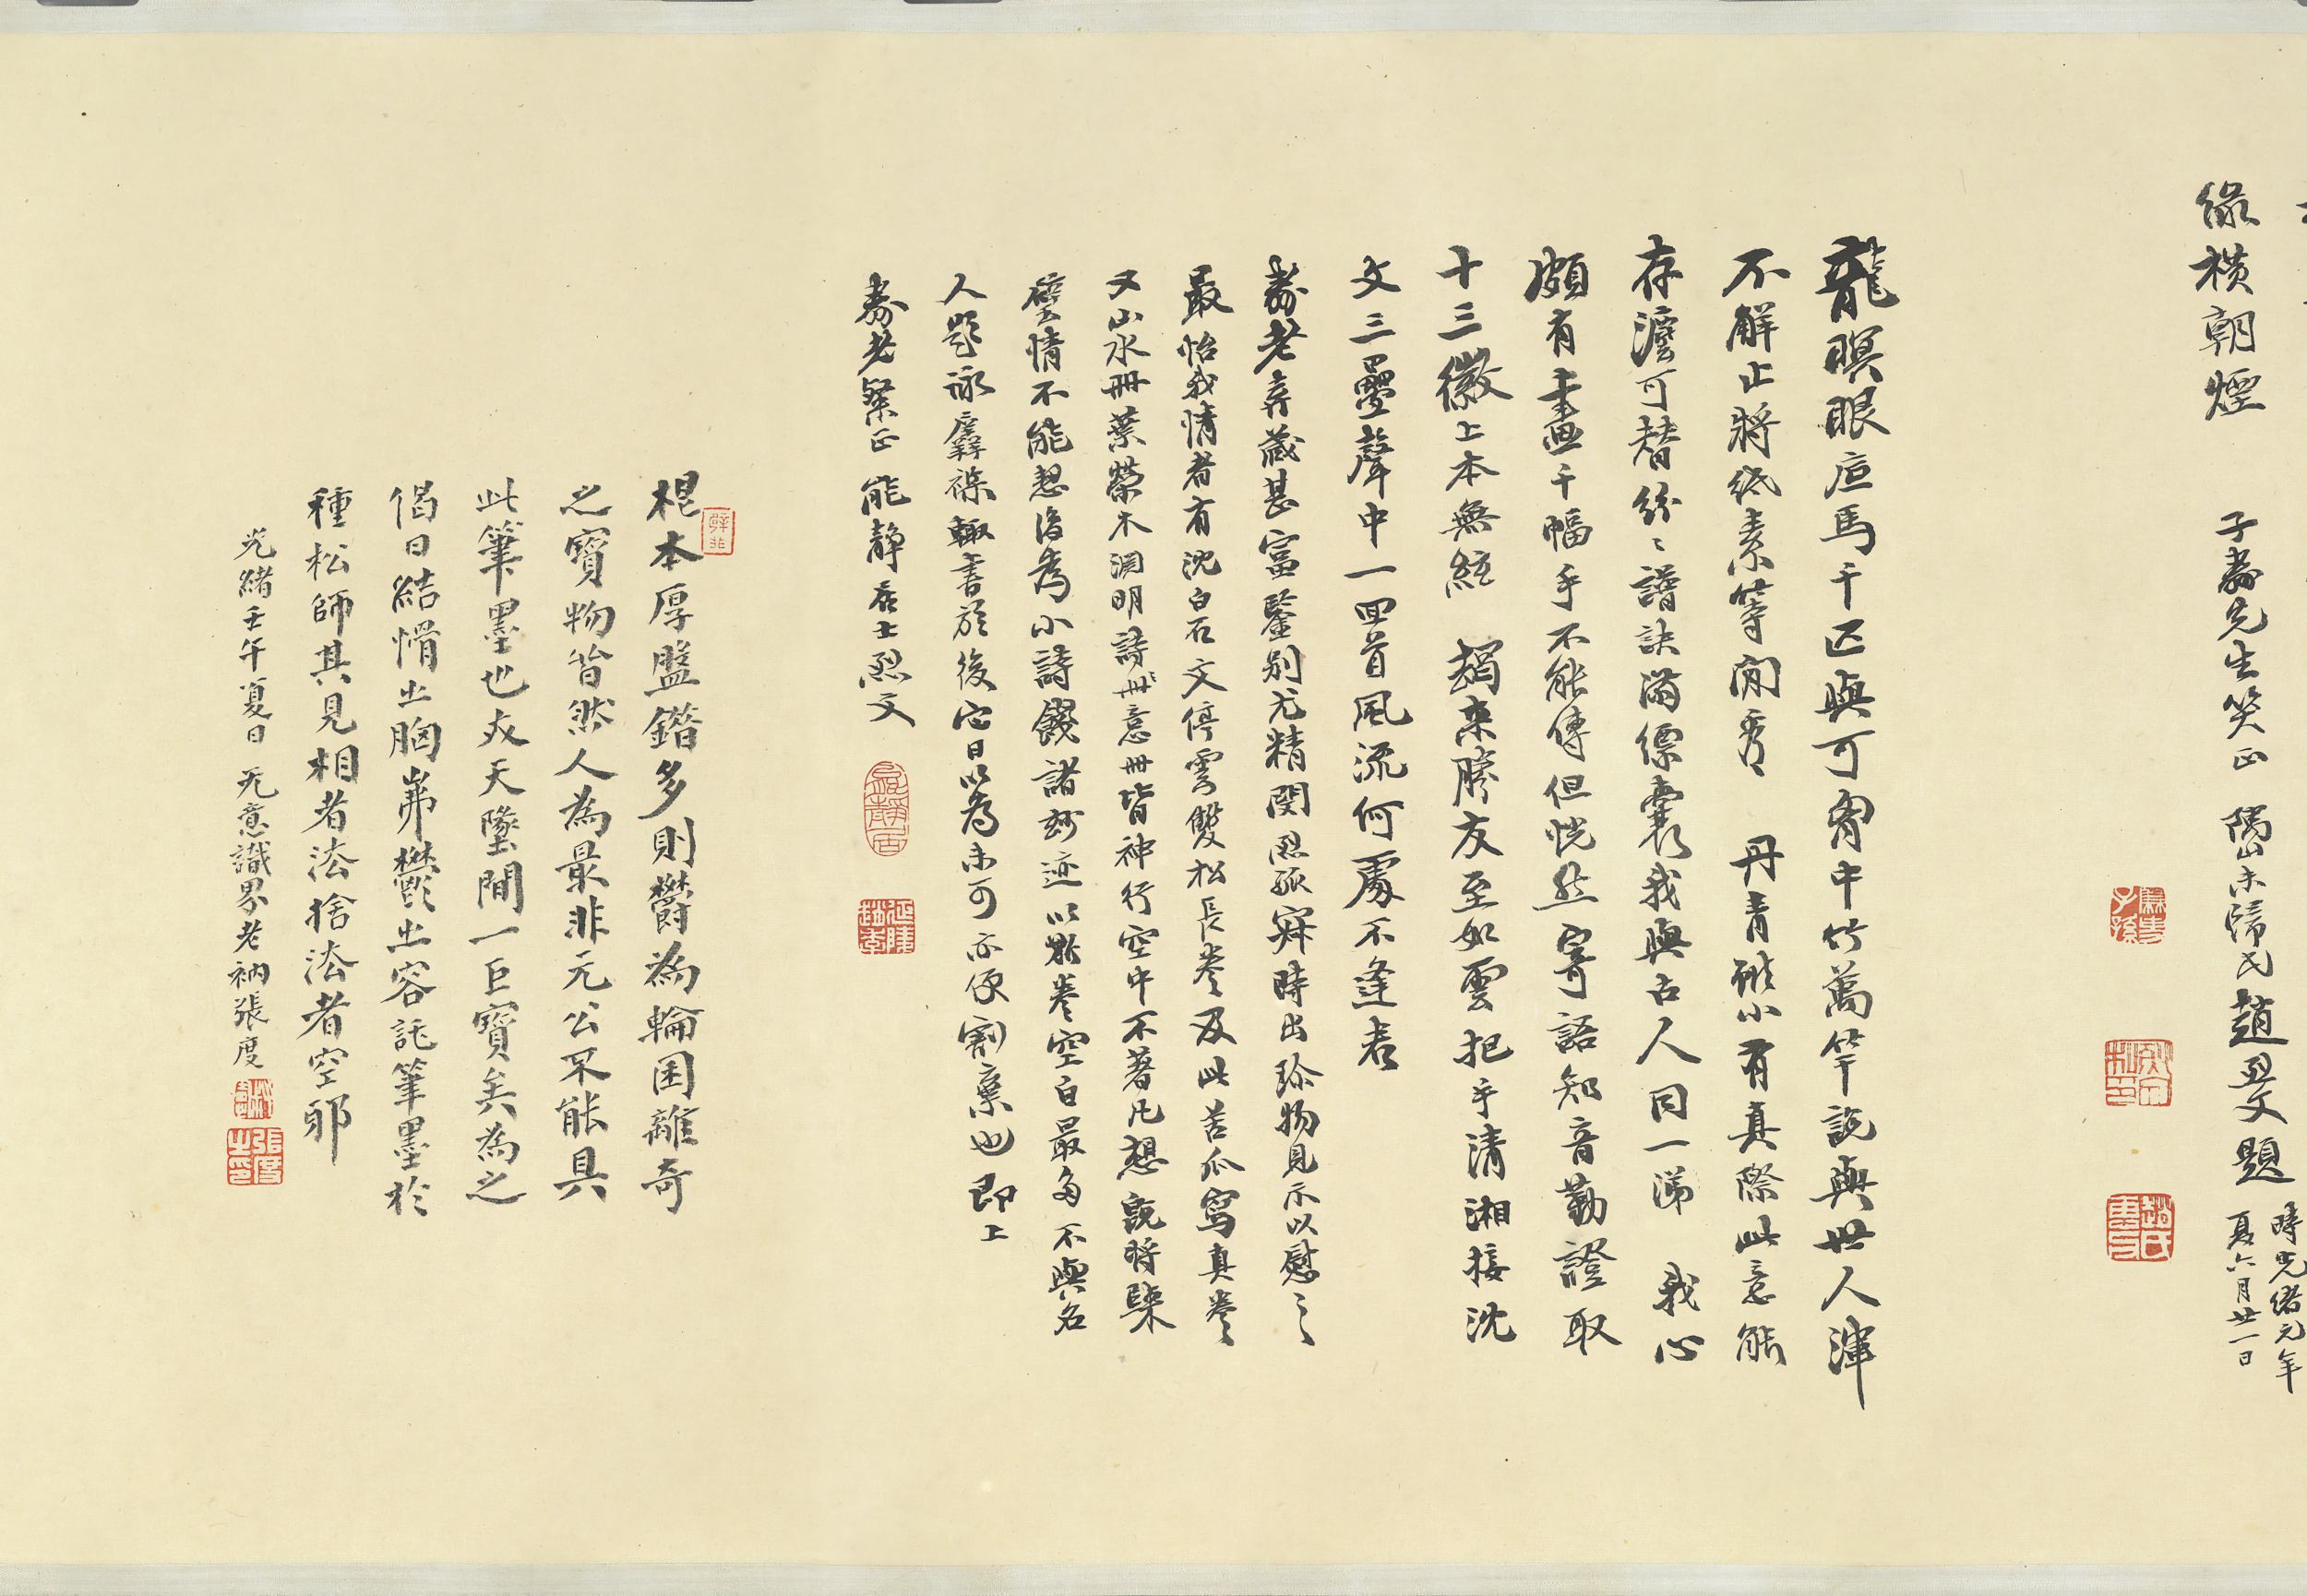 綠橫朝煙
子壽先生笑正 陽山未歸氏趙烈文題
時光緒元年
夏六月廿一日
龍瞑眼底馬千匹與可胷中竹萬竿說與世人渾
不解止將紙素等閒看 丹青雖小有真際此意能
存濠可替紛〻譜訣滿縹囊我與古人同一涕 我心
頗有畫千幅手不能傳但恍然寄語知音勤證取
十三徽上本無絃 朅來勝友至如雲把手清湘接沈
文三疊聲中一回首風流何處不逢君
壽老弆藏甚富鑒別尤精閔烈孤寐時出珍物見示以慰〻
最怡我情者有沈白石文停雲雙松長卷及此苦瓜寫真卷
又山水冊葉榮木淵明詩冊〻意冊皆神行空中不著凡想既將歸
璧情不能恝復為小詩餞諸妙迹以此卷空白最多不與名
人題詠羼襍輒書於後它日以為未可亦便割棄也即上
壽老粲正 能靜居士烈文
根本厚盤錯多則鬱為輪囷離奇
之寶物皆然人為最非元公不能具
此筆墨也夾天墜間一巨寶矣為之
偈曰結愲㞢胸岪鬱㞢容託筆墨於
種松師其見相者法捨法者空耶
光緒壬午夏日 无意識界老衲張度
能靜居
張度之印